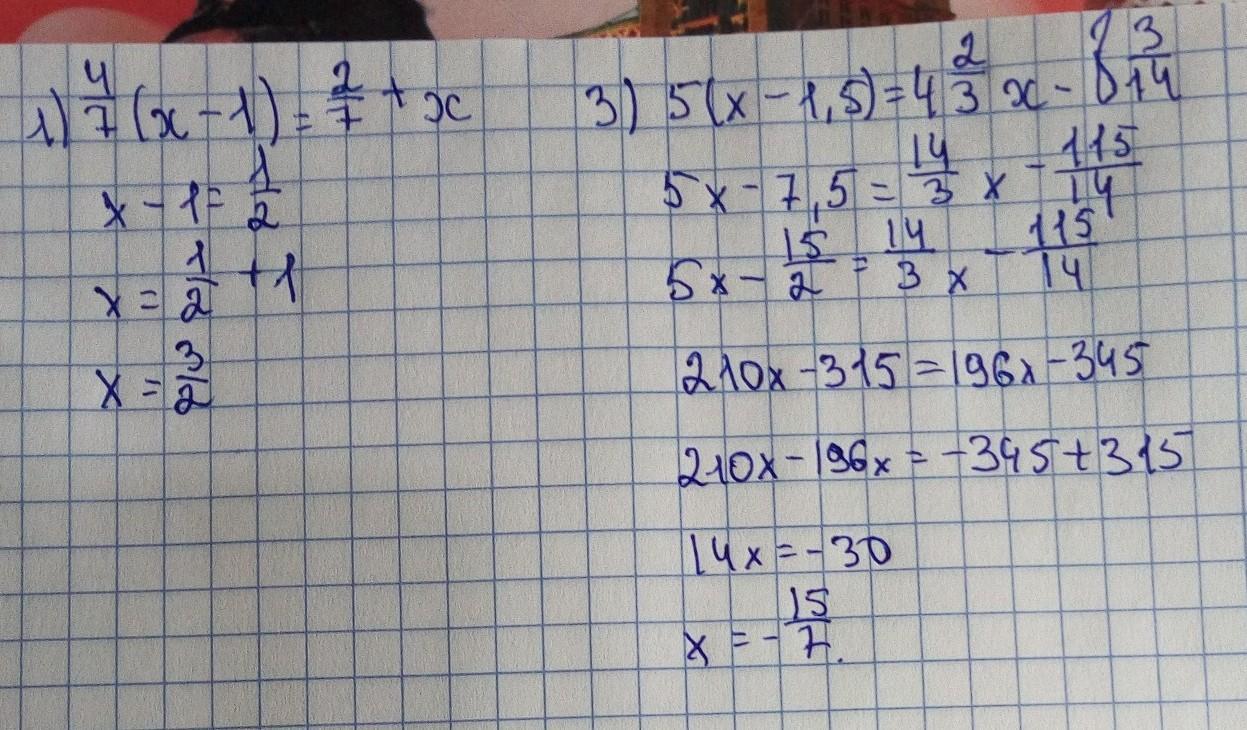 1) 4/7 (x - 1) = 2/7 + x
x - 1 = 1/2
x = 1/2 + 1
x = 3/2
3) 5(x - 1,5) = 4 2/3 x - 8 3/14
5x - 7,5 = 14/3 x - 115/14
5x - 15/2 = 14/3 x - 115/14
210x - 315 = 196x - 345
210x - 196x = -345 + 315
14x = -30
x = - 15/7.